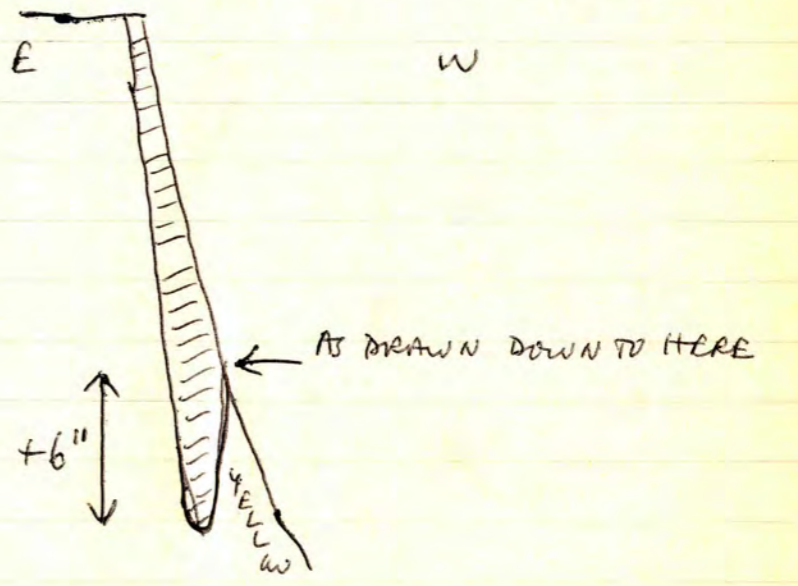 E
W
AS DRAWN DOWN TO HERE
+6"
YELLOW